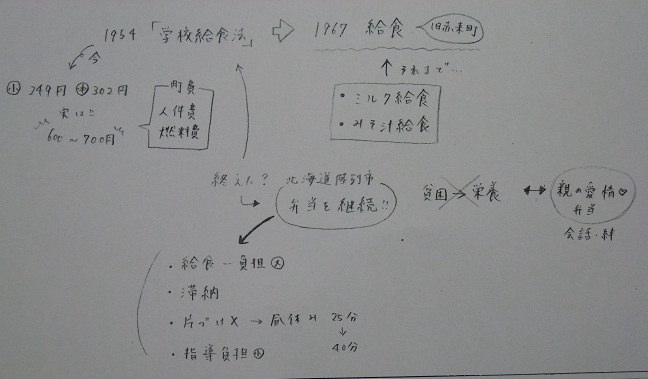 1954 「学校給食法」 ⇨ 1967 給食 旧赤来町
今
㊥ 302円
小 249円
実は!!
"600〜700円"
町費
人件費
燃料費
それまで…
・ミルク給食
・みそ汁給食
終えた? 北海道陸別市
弁当を継続!!
貧困 → 栄養 ↔ 親の愛情♡
弁当
会話・絆
・給食…負担 大
・滞納
・片づけ× → 昼休み 25分
↓
40分
・指導負担